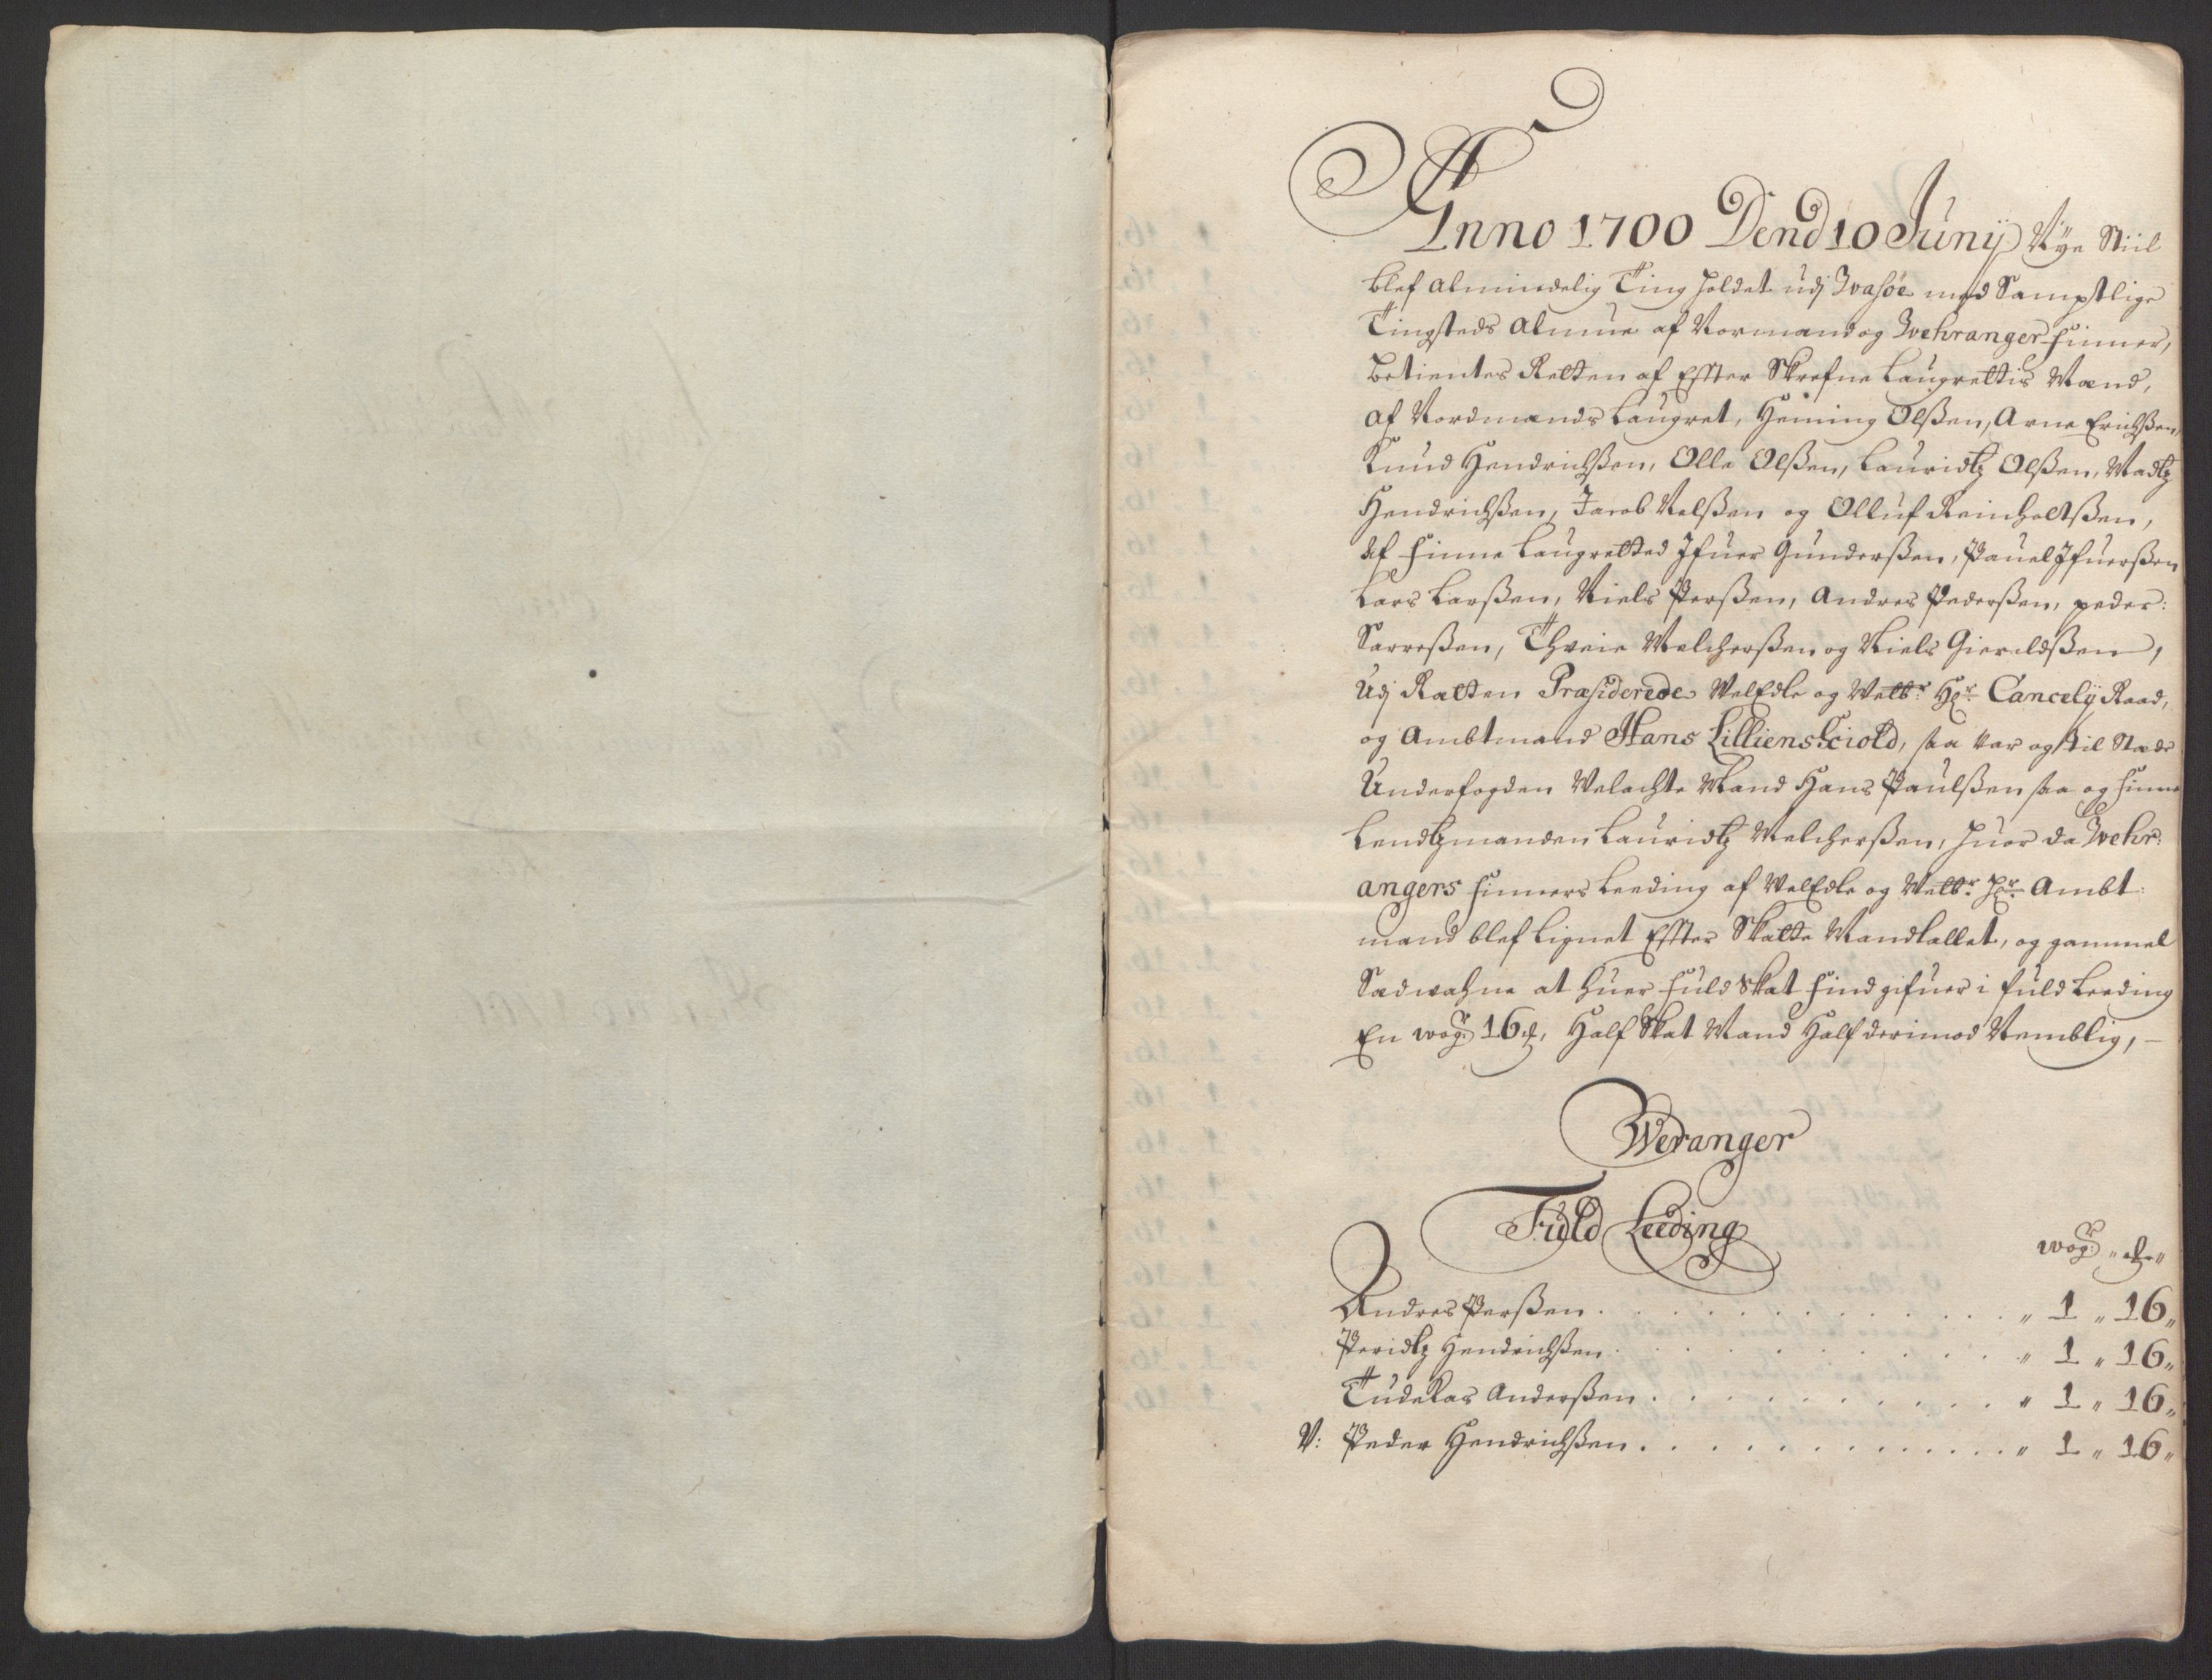 Anno 1700 Dend 10 Junij Nÿe Stiil
blef almindelig Ting holdet udj Wasøe med Samptlige
Tingsteds Almue af Normand og Wehranger finner,
betientes Retten af Effter Skrefne Laugrettis Mænd,
af Nordmands Laugret, Heming Olßen, Arne Erichßen,
Knud Hendrichßen, Olle Olßen, Lauridtz Olßen, Madtz
Hendrichßen, Jacob Nelßen og Olluf Reinholtßen,
af finne Laugretted Ifuer Gunderßen, Pauel Ifuerßen
Lars Larßen, Niels Perßen, Andres Pederßen, peder:
Sarreßen, Melcherßen og Niels Giereldßen,
Udj Rætten Præsiderede WelEdle og Welbr. Hr. Cancelÿ Raad,
og Ambtmand Hans Lilliensciold, saa var og til Stæde
Underfogden Velachte Mand Hans Paulßen saa og finne
Lendtzmanden Lauridtz Melcherßen, huor da Wehr:
angers finners Leeding af WelEdle og Welbr. Hr. Ambt:
mand blef Lignet Effter Skatte Mandtallet, og gammel
Sædwahne at huer fuld Skat find gifuer i fuld Leeding
En wogr. 16 ℔, Half Skat Mand Half derimod Nemblig, –
Weranger
Fuld Leeding
wogr. „ ℔ „
Andres Perßen . . . . . . . . „ 1 „ 16 „
Peridtz Hendrichßen . . . . . . . . „ 1 „ 16 „
Tudekas Anderßen . . . . . . . . „ 1 „ 16 „
V: Peder Hendrichßen . . . . . . . . „ 1 „ 16 „